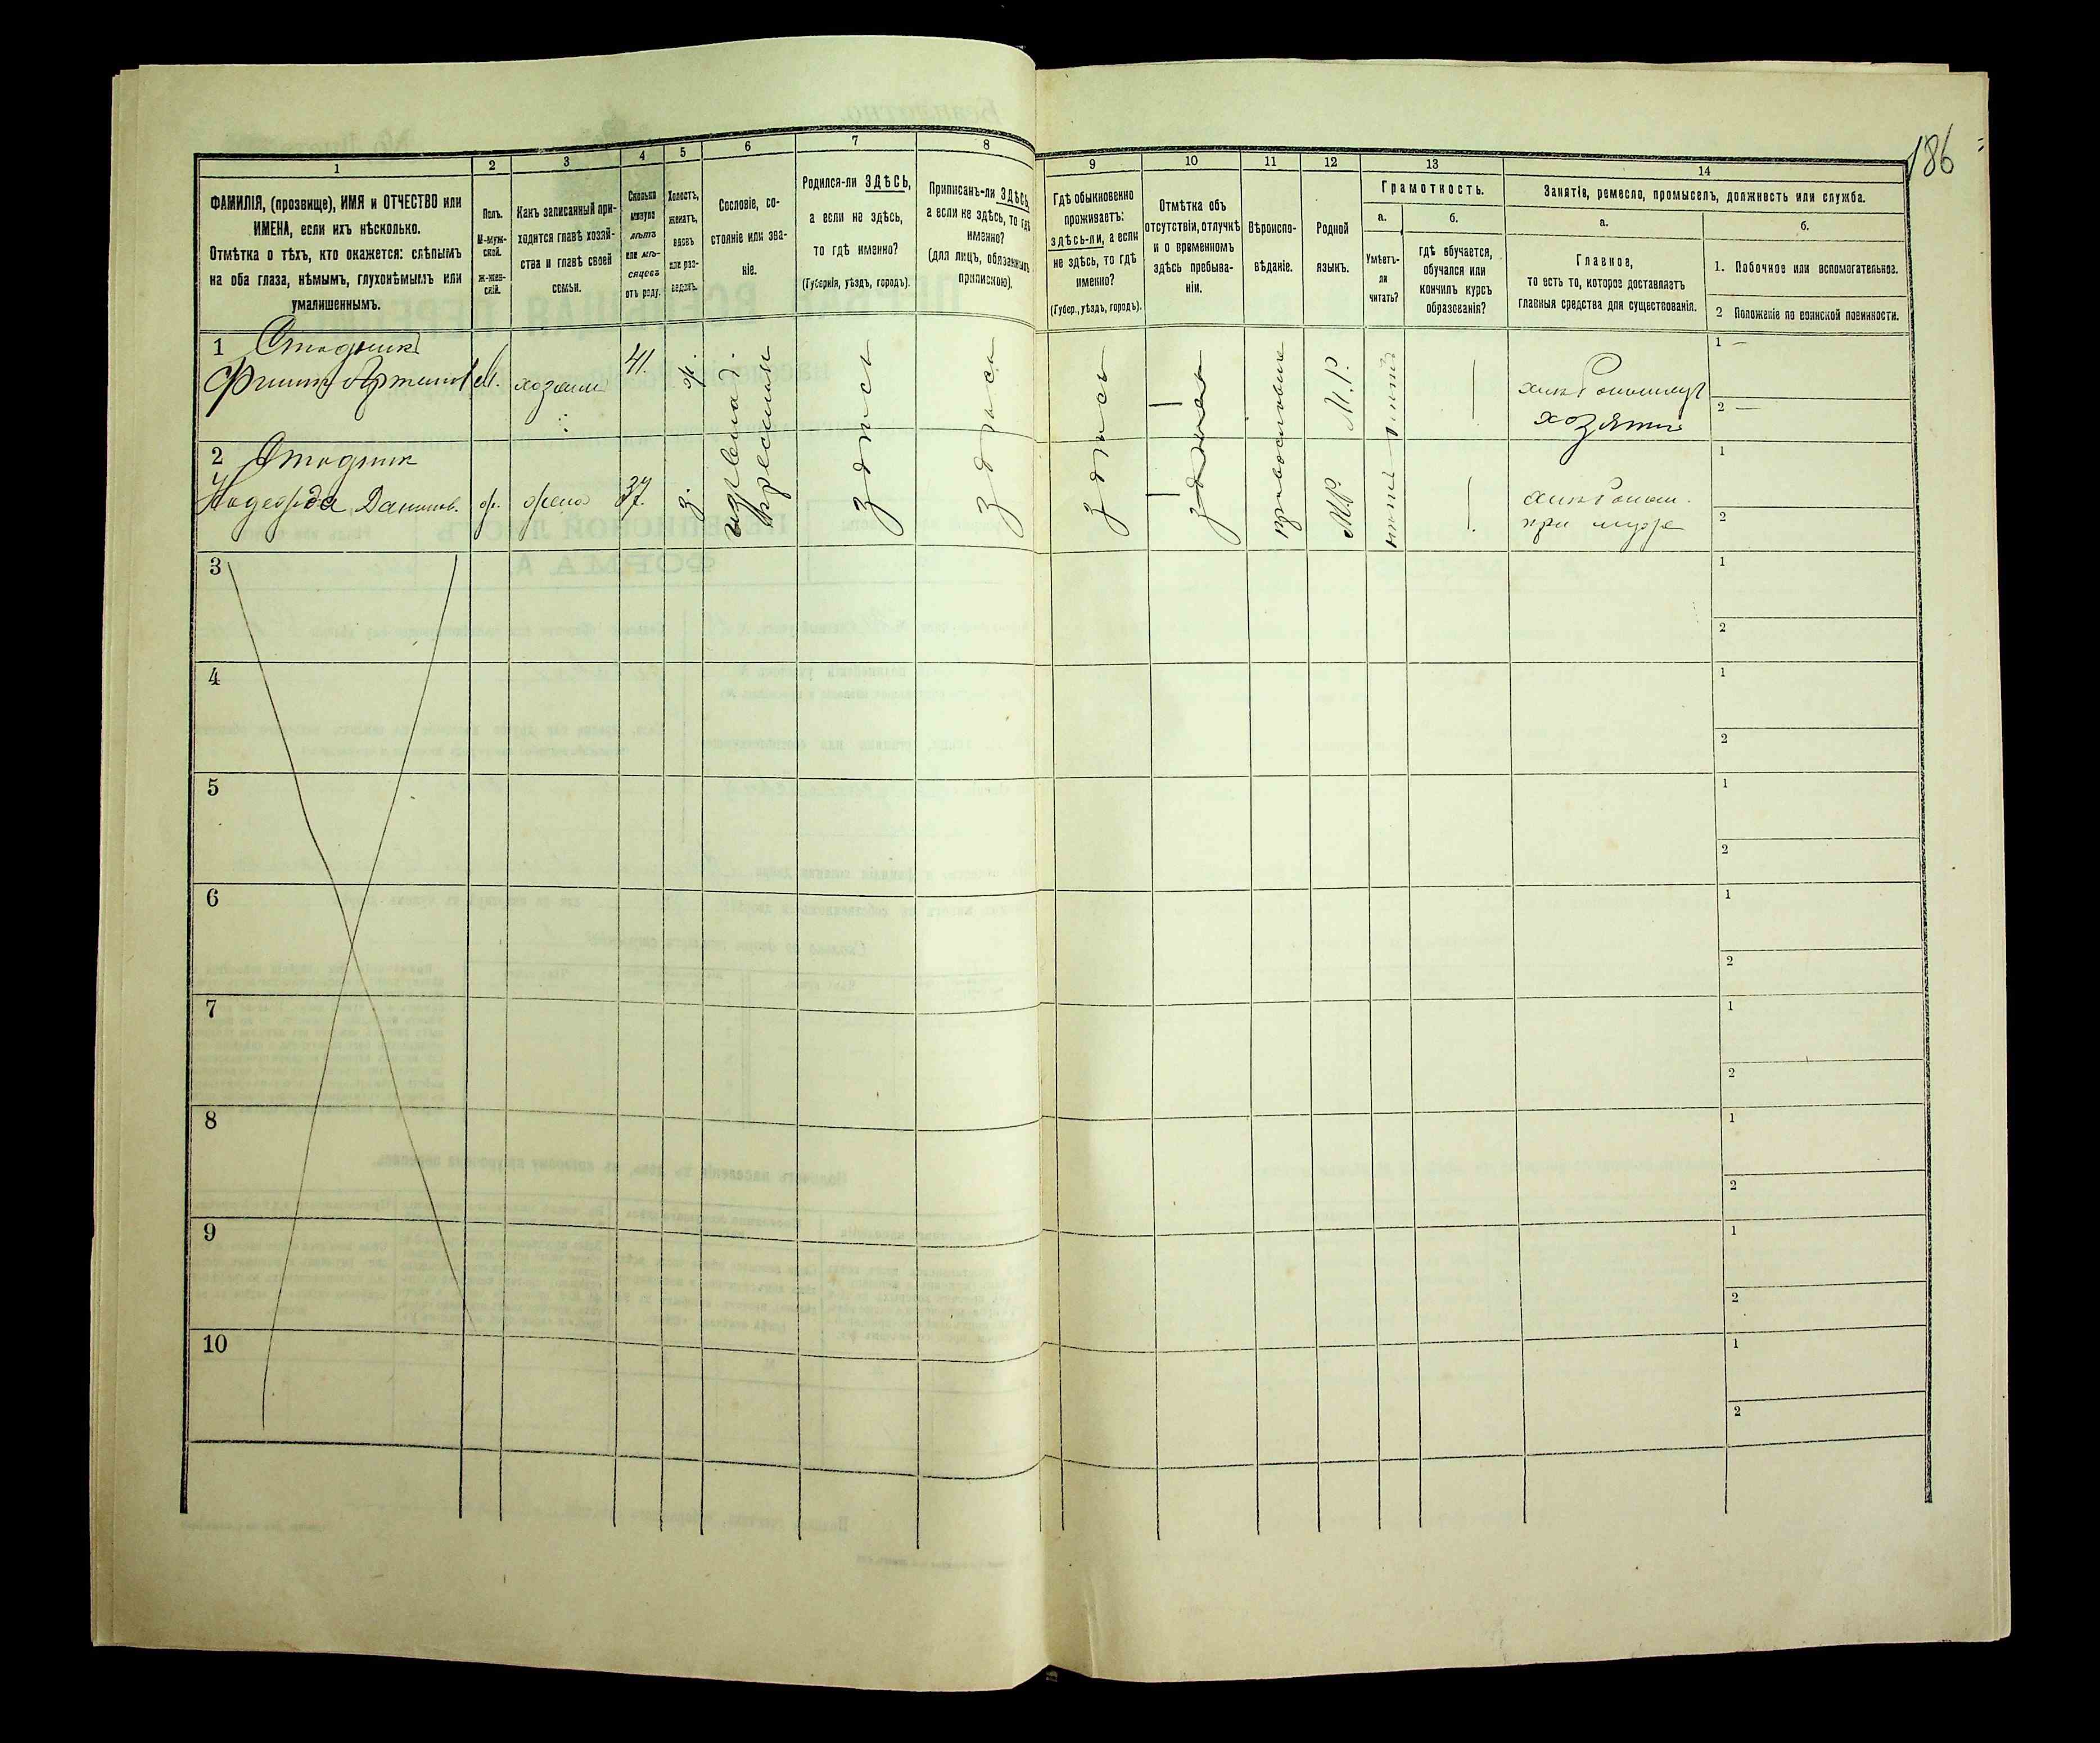 186
1
ФАМИЛІЯ, (прозвище), ИМЯ и ОТЧЕСТВО или
ИМЕНА, если ихъ нѣсколько.
Отмѣтка о тѣхъ, кто окажется: слѣпымъ
на оба глаза, нѣмымъ, глухонѣмымъ или
умалишеннымъ.
2
Полъ.
М-муж-
ской.
ж-жен-
скій.
3
Какъ записанный при-
ходится главѣ хозяй-
ства и главѣ своей
семьи.
4
Сколько
минуло
лѣтъ
или мѣ-
сяцевъ
отъ роду.
5
Холостъ,
женатъ,
вдовъ
или раз-
веденъ.
6
Сословіе, со-
стояніе или зва-
ніе.
7
Родился-ли ЗДѢСЬ,
а если не здѣсь,
то гдѣ именно?
(Губернія, уѣздъ, городъ).
8
Приписанъ-ли ЗДѢСЬ,
а если не здѣсь, то гдѣ
именно?
(для лицъ, обязанныхъ
припискою).
9
Гдѣ обыкновенно
проживаетъ:
здѣсь-ли, а если
не здѣсь, то гдѣ
именно?
(Губер., уѣздъ, городъ).
10
Отмѣтка объ
отсутствіи, отлучкѣ
и о временномъ
здѣсь пребыва-
ніи.
11
Вѣроиспо-
вѣданіе.
12
Родной
языкъ.
13
Грамотность.
а.
Умѣетъ-
ли
читать?
б.
гдѣ обучается,
обучался или
кончилъ курсъ
образованія?
14
Занятіе, ремесло, промыселъ, должность или служба.
а.
Главное,
то есть то, которое доставляетъ
главныя средства для существованія.
б.
1. Побочное или вспомогательное.
2 Положеніе по воинской повинности.
1
М.
41.
ж.
здѣсь
здѣсь
здѣсь
М.Р.
хозяинъ
1 —
2 —
2
Надежда Данилов.
ж.
жена
37.
з.
здѣсь
здѣсь
здѣсь
М.Р.
при мужѣ
1
2
3
1
2
4
1
2
5
1
2
6
1
2
7
1
2
8
1
2
9
1
2
10
1
2